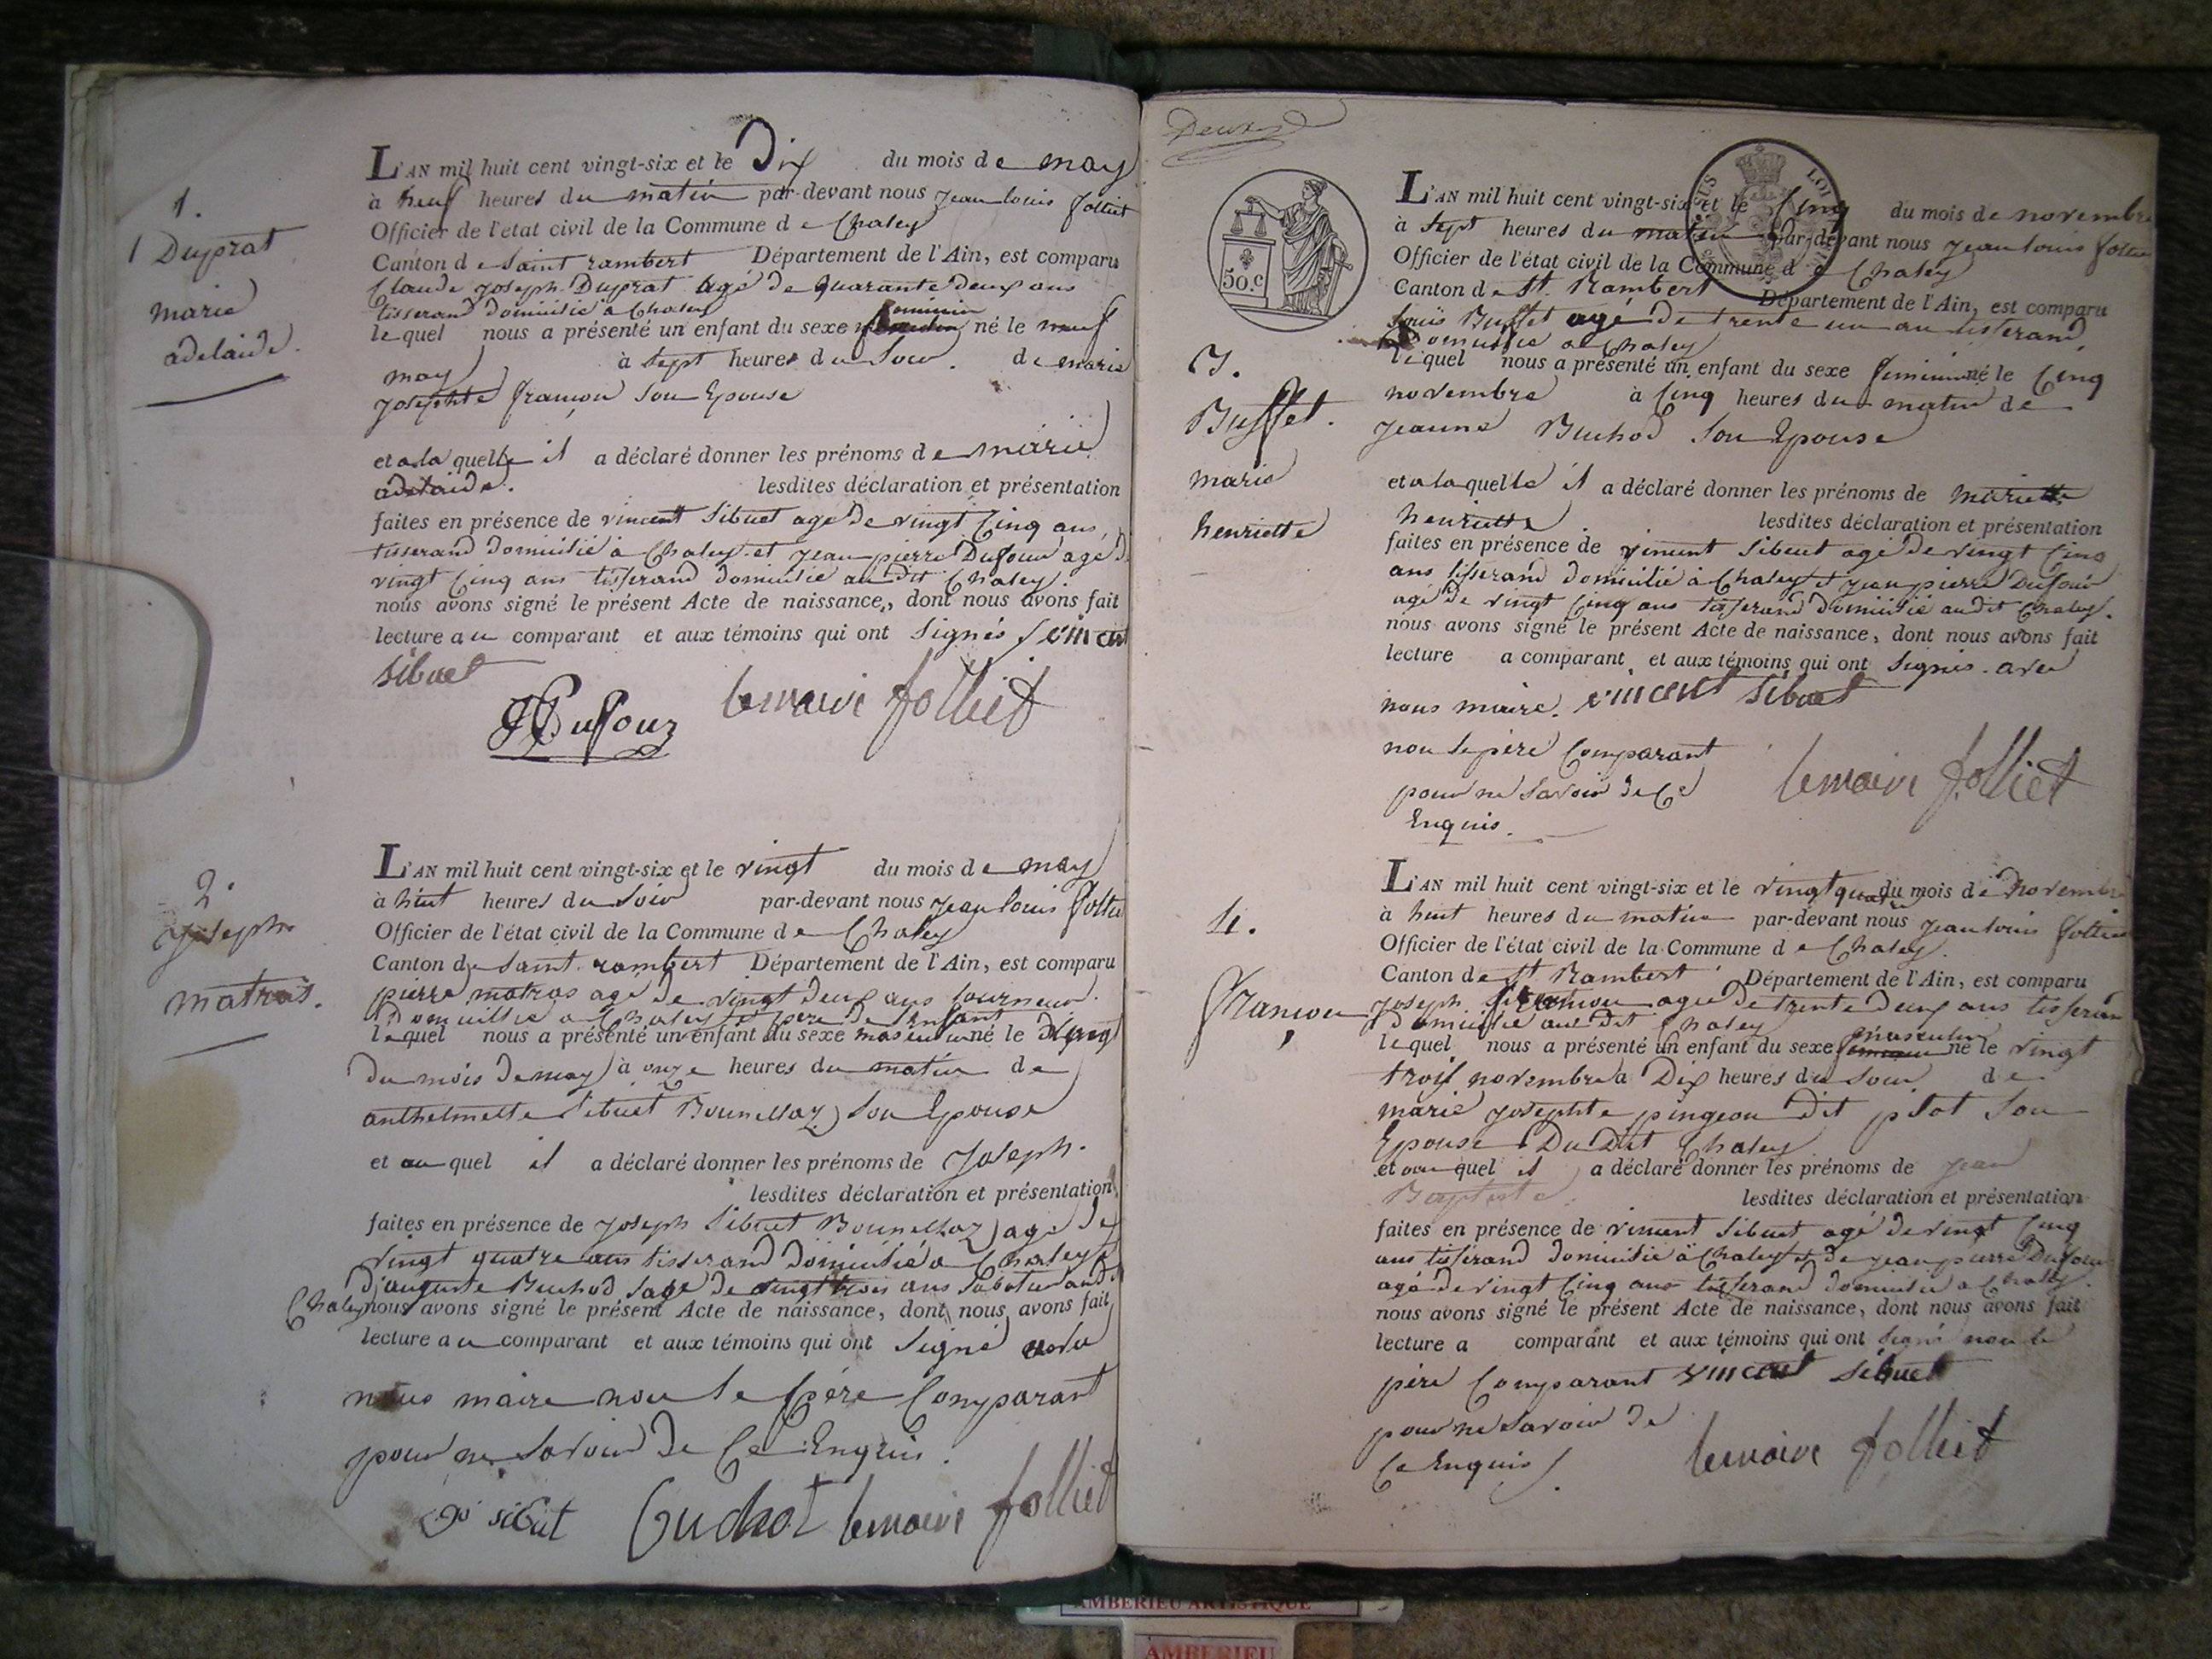 1.
1 Duprat
marie
adelaide.
L'AN mil huit cent vingt-six et le Dix du mois de may
à neuf heures du matin par-devant nous jean louis folliet
Officier de l'etat civil de la Commune de Chaley
Canton de saint rambert Département de l'Ain, est comparu
Claude joseph Duprat agé de quarante deux ans
tisserand domicilié à Chaley
feminin
lequel nous a présenté un enfant du sexe né le neuf
may à sept heures du soir. de marie
josephte françon son Epouse
et a la quelle il a déclaré donner les prénoms de marie
adelaide. lesdites déclaration et présentation
faites en présence de vincent Sibuet agé de vingt Cinq ans,
tisserand domicilié à Chaley et jean pierre Dufour agé de
vingt Cinq ans tisserand domicilié au dit Chaley.
nous avons signé le présent Acte de naissance, dont nous avons fait
lecture au comparant et aux témoins qui ont Signés vincent
sibuet
JP Dufour lemaire folliet
2.
joseph
matras.
L'AN mil huit cent vingt-six et le vingt du mois de may
à huit heures du soir par-devant nous jean louis folliet
Officier de l'état civil de la Commune de Chaley
Canton de saint rambert Département de l'Ain, est comparu
pierre matras agé de vingt deux ans tourneur.
domicilié a Chaley et père de l'enfant
lequel nous a présenté un enfant du sexe masculin né le vingt
du mois de may à onze heures du matin de
anthelmette Sibuet Bounellaz son Epouse
et au quel il a déclaré donner les prénoms de joseph.
lesdites déclaration et présentation
faites en présence de joseph Sibuet Bounellaz agé de
vingt quatre ans tisserand domicilié a Chaley &
d'auguste Buchod agé de vingt trois ans Sabotier audit
Chaley nous avons signé le présent Acte de naissance, dont nous avons fait
lecture au comparant et aux témoins qui ont Signé avec
nous maire non le père Comparant
pour ne Savoir de Ce Enquis.
sibuet Buchot lemaire folliet
Deux
50.c
3.
Buffet.
marie
henriette
L'AN mil huit cent vingt-six et le Cinq du mois de novembre
à sept heures du matin par-devant nous jean louis folliet
Officier de l'état civil de la Commune de Chaley
Canton de St. Rambert Département de l'Ain, est comparu
Louis Buffet agé de trente un an tisserand,
Domicilié a Chaley
lequel nous a présenté un enfant du sexe feminin né le Cinq
novembre à Cinq heures du matin de
jeanne Buchod son Epouse
et a la quelle il a déclaré donner les prénoms de
henriette lesdites déclaration et présentation
faites en présence de vincent Sibuet agé de vingt Cinq
ans tisserand domicilié à Chaley et jean pierre Dufour
agé de vingt Cinq ans tisserand domicilié audit Chaley.
nous avons signé le présent Acte de naissance, dont nous avons fait
lecture a comparant et aux témoins qui ont Signés. avec
nous maire. vincent sibuet
non le père Comparant
pour ne Savoir de Ce lemaire folliet
Enquis.
4.
françon
L'AN mil huit cent vingt-six et le vingt quatre du mois de novembre
à huit heures du matin par-devant nous jean louis folliet
Officier de l'état civil de la Commune de Chaley.
Canton de St Rambert Département de l'Ain, est comparu
joseph françon agée de trente deux ans tisserand
domicilié au dit Chaley
masculin
lequel nous a présenté un enfant du sexe né le vingt
trois novembre à Dix heures du soir de
marie josephte pingeon dit pilot son
Epouse Du Dit Chaley
et au quel il a déclaré donner les prénoms de jean
Baptiste. lesdites déclaration et présentation
faites en présence de vincent Sibuet agé de vingt Cinq
ans tisserand domicilié à Chaley et de jean pierre Dufour
agé de vingt Cinq ans tisserand domicilié a Chaley.
nous avons signé le présent Acte de naissance, dont nous avons fait
lecture a comparant et aux témoins qui ont signé non le
père Comparant vincent Sibuet
pour ne Savoir de
Ce Enquis. lemaire folliet
AMBERIEU ARTISTIQUE
AMBERIEU